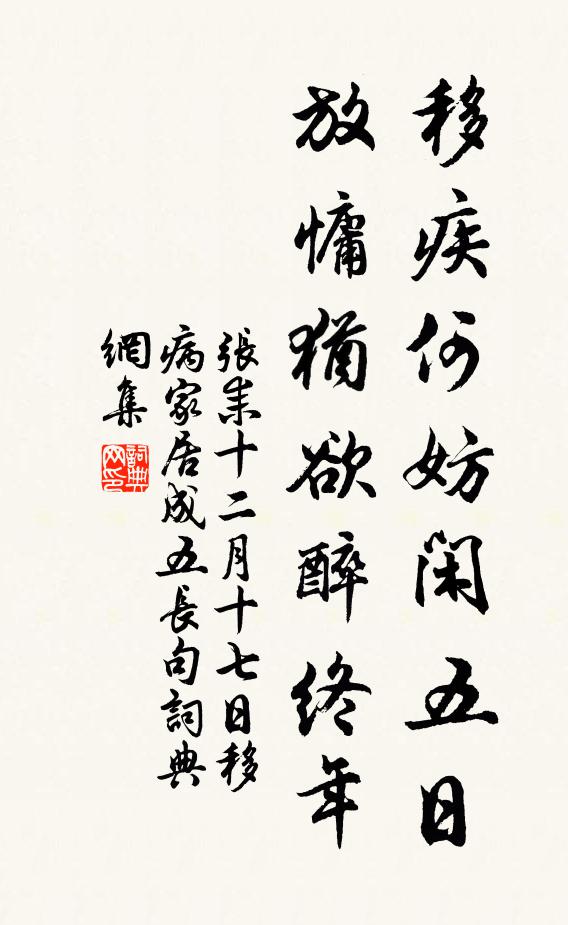 移疾何妨閑五日
放慵猶欲醉終年
張耒十二月十七日移
病家居成五長句詞典
網集
詞典
网印